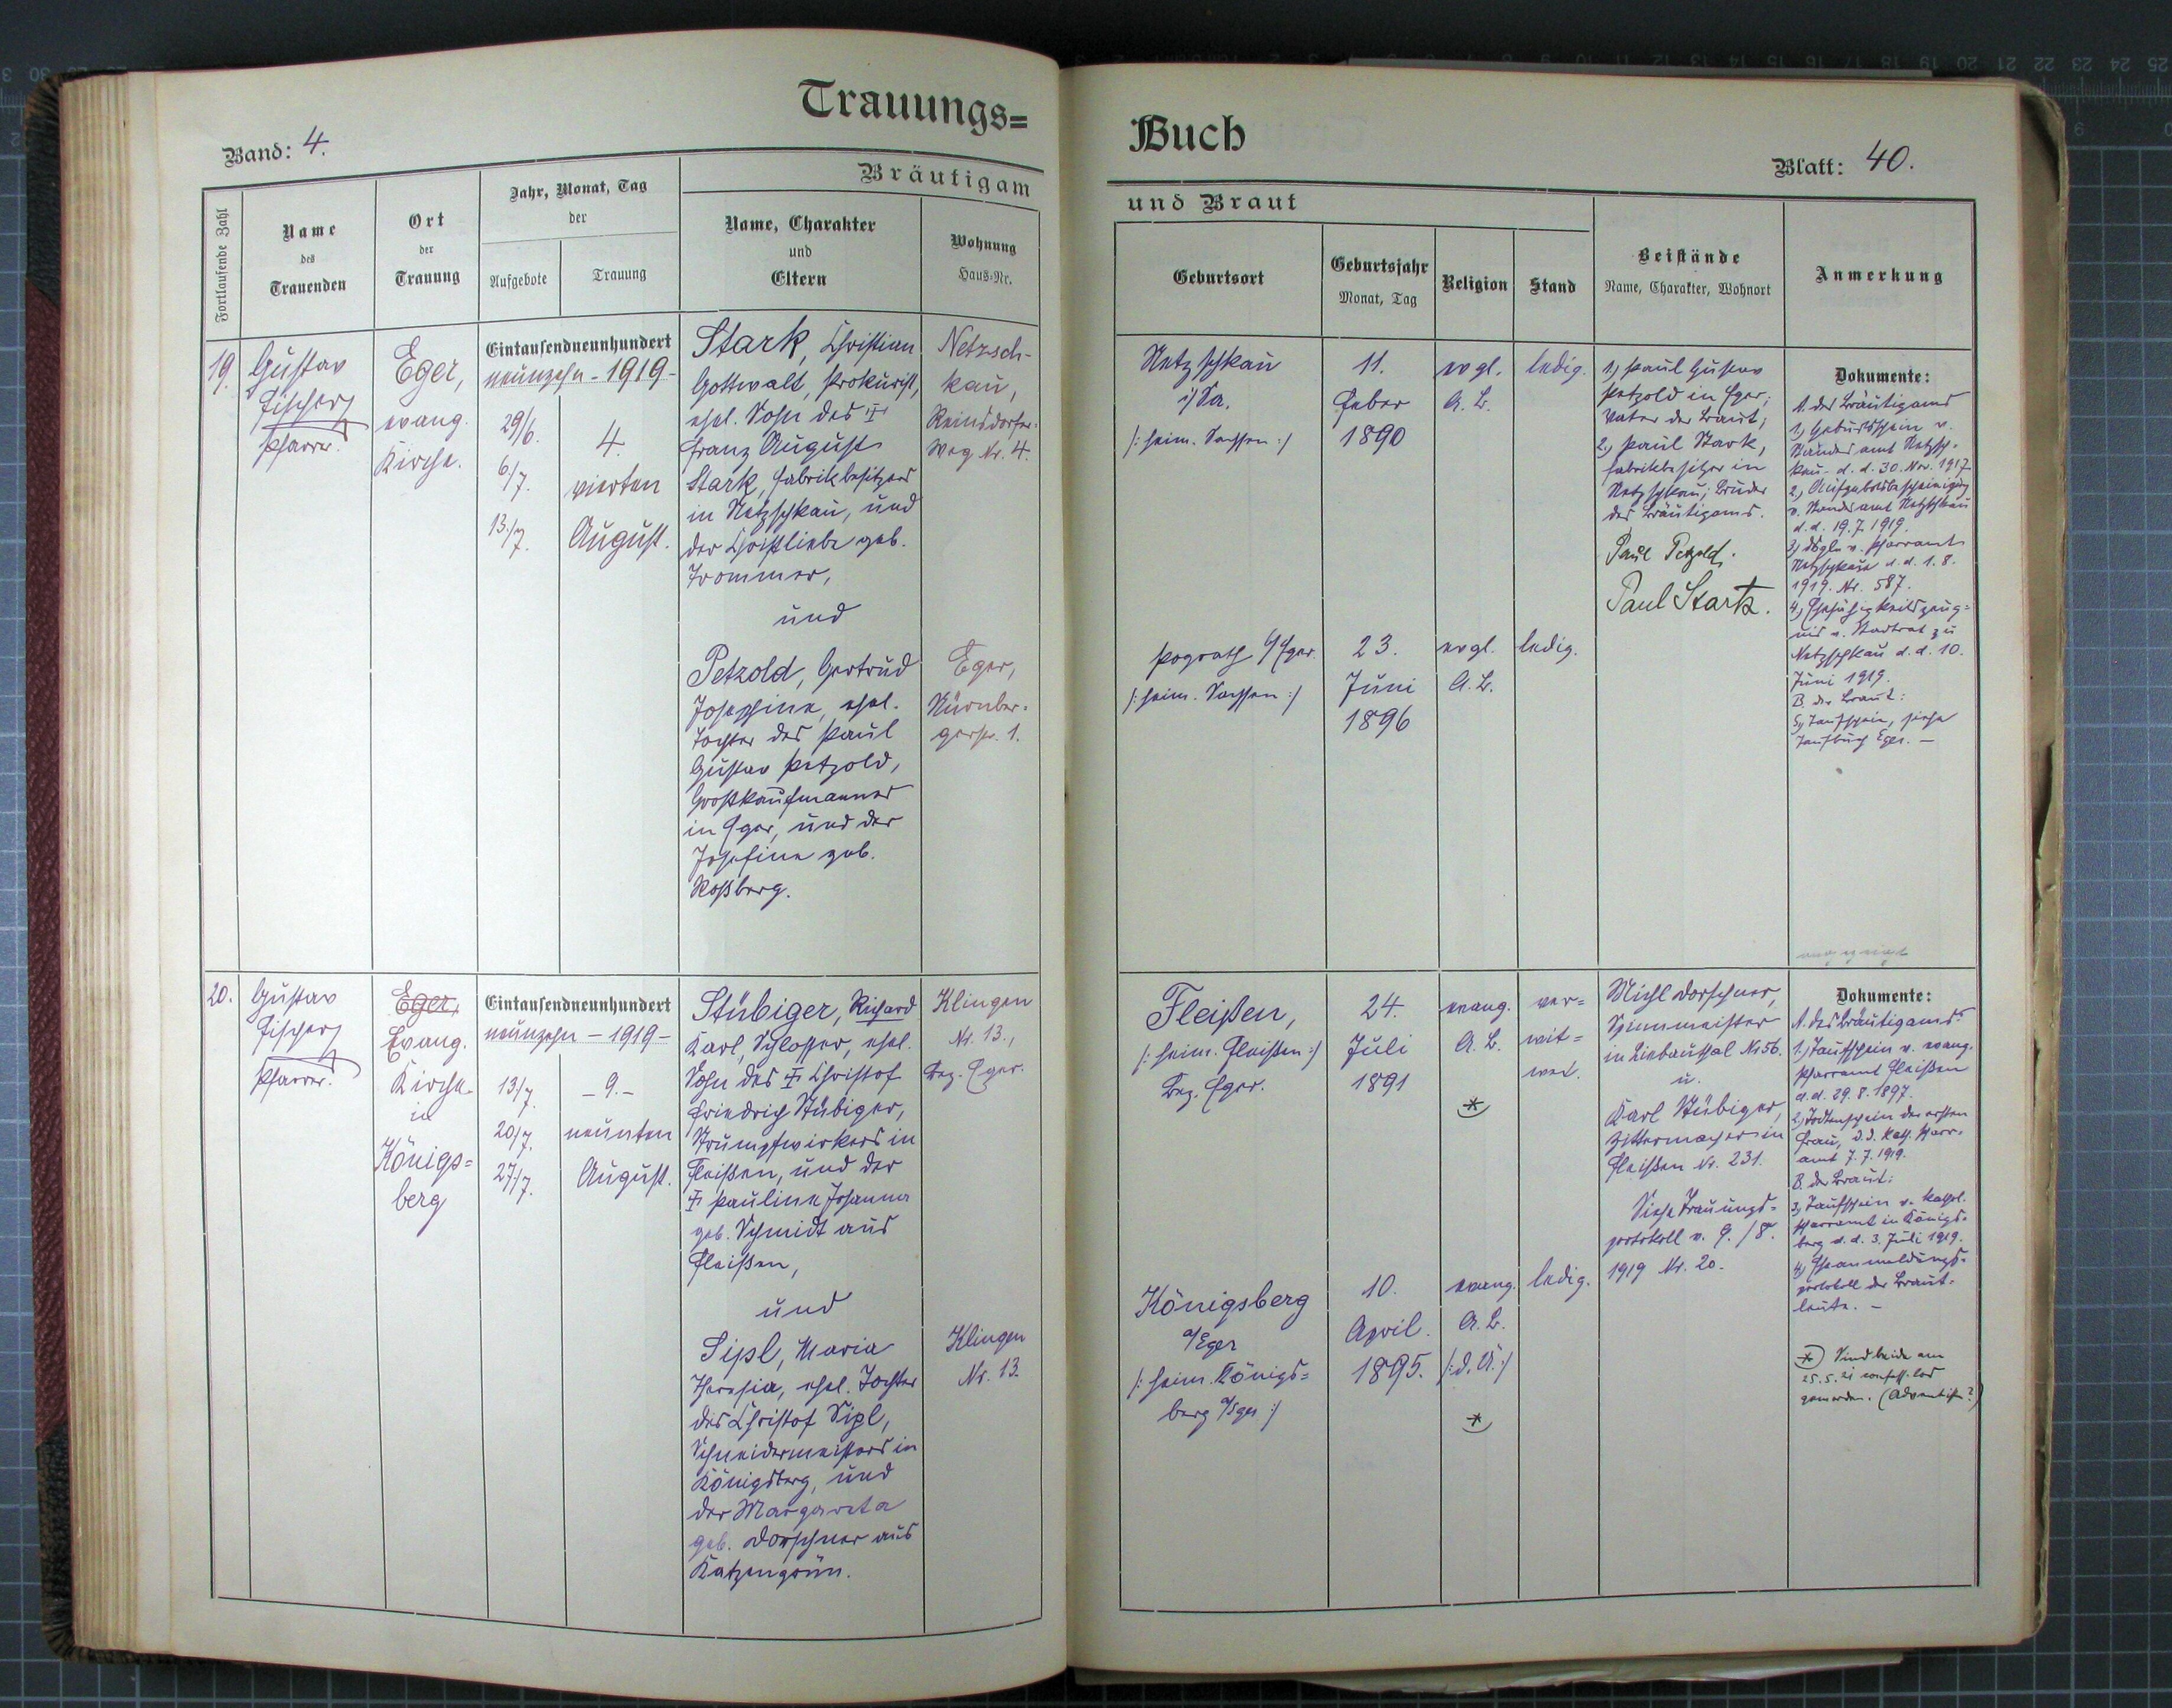 Trauungs=
Band: 4.
Bräutigam
Fortlaufende Zahl
Name
des
Trauenden
Ort
der
Trauung
Jahr, Monat, Tag
der
Aufgebote
Trauung
Name, Charakter
und
Eltern
Wohnung
Haus-Nr.
19.
Gustav
Fischer
Pfarrer.
Eger,
evang.
Kirche.
Eintausendneunhundert
neunzehn - 1919 -
29/6.
6/7.
13/7.
4.
vierten
August.
Stark, Christian
Gottwalt, Prokurist,
ehel. Sohn des †
Franz August
Stark, Fabrikbesitzers
in Netzschkau, und
der Christliebe geb.
Trommer,
und
Petzold, Gertrud
Josephine, ehel.
Tochter des Paul
Gustav Petzold,
Großkaufmannes
in Eger, und der
Josefine geb.
Roßberg.
Netzsch-
kau,
Reinsdorfer-
weg Nr. 4.
Eger,
Nürnber-
gerstr. 1.
20.
Gustav
Fischer
Pfarrer.
Eger,
Evang.
Kirche
in
Königs=
berg
Eintausendneunhundert
neunzehn - 1919 -
13/7.
20/7.
27/7.
- 9. -
neunten
August.
Stübiger, Richard
Karl, Schlosser, ehel.
Sohn des † Christof
Friedrich Stübiger,
Strumpfwirkers in
Fleißen, und der
† Pauline Johanna
geb. Schmidt aus
Fleißen,
und
Sipl, Maria
Theresia, ehel. Tochter
des Christof Sipl,
Schneidermeisters in
Königsberg, und
der Margareta
geb. Dorschner aus
Katzengrün.
Klingen
Nr. 13.,
Bez. Eger.
Klingen
Nr. 13.
Buch
Blatt: 40.
und Braut
Geburtsort
Geburtsjahr
Monat, Tag
Religion
Stand
Beistände
Name, Charakter, Wohnort
Anmerkung
Netzschkau
i/Sa.
/: heim. Sachsen :/
11.
Feber
1890
evgl.
A. B.
ledig.
Pograth b/Eger.
/: heim. Sachsen :/
23.
Juni
1896
evgl.
A. B.
ledig.
1, Paul Gustav
Petzold in Eger;
Vater der Braut;
2, Paul Stark,
Fabrikbesitzer in
Netzschkau; Bruder
des Bräutigams.
Paul Petzold.
Paul Stark.
Dokumente:
A. des Bräutigams
1, Geburtsschein v.
Standesamt Netzsch-
kau d. d. 30. Nov. 1917
2, Aufgebotsbescheinigung
v. Standesamt Netzschkau
d. d. 19.7.1919.
3, dsgln v. Pfarramt
Netzschkau d. d. 1. 8.
1919. Nr. 587.
4, Ehefähigkeitszeug=
nis v. Stadtrat zu
Netzschkau d. d. 10.
Juni 1919.
B. der Braut:
5, Taufschein, siehe
Taufbuch Eger. -
Fleißen,
/: heim. Fleißen :/
Bez. Eger.
24.
Juli
1891
evang.
A. B.
*
ver=
wit=
wet.
Königsberg
a/Eger
/: heim. Königs=
berg a/Eger :/
10.
April.
1895.
evang.
A. B.
/: d. Ü. :/
*
ledig.
Michl Dorschner,
Spinnmeister
in Liebauthal Nr. 56.
u.
Karl Stübiger,
Zittermacher in
Fleißen Nr. 231.
Siehe Trauungs=
protokoll v. 9. / 8.
1919 Nr. 20.
Dokumente:
A. des Bräutigams:
1., Taufschein v. evang.
Pfarramt Fleißen
d. d. 29. 8. 1897.
2, Totenschein der ersten
Frau, d. d. kath. Pfarr-
amt 7. 7. 1919.
B. der Braut:
3, Taufschein v. kathol.
Pfarramt in Königs-
berg d. d. 3. Juli 1919.
4, Eheanmeldungs-
protokoll der Braut-
leute. -
* Sind beide am
25. 5. 21 konfess. los
geworden. (Adventisten?)